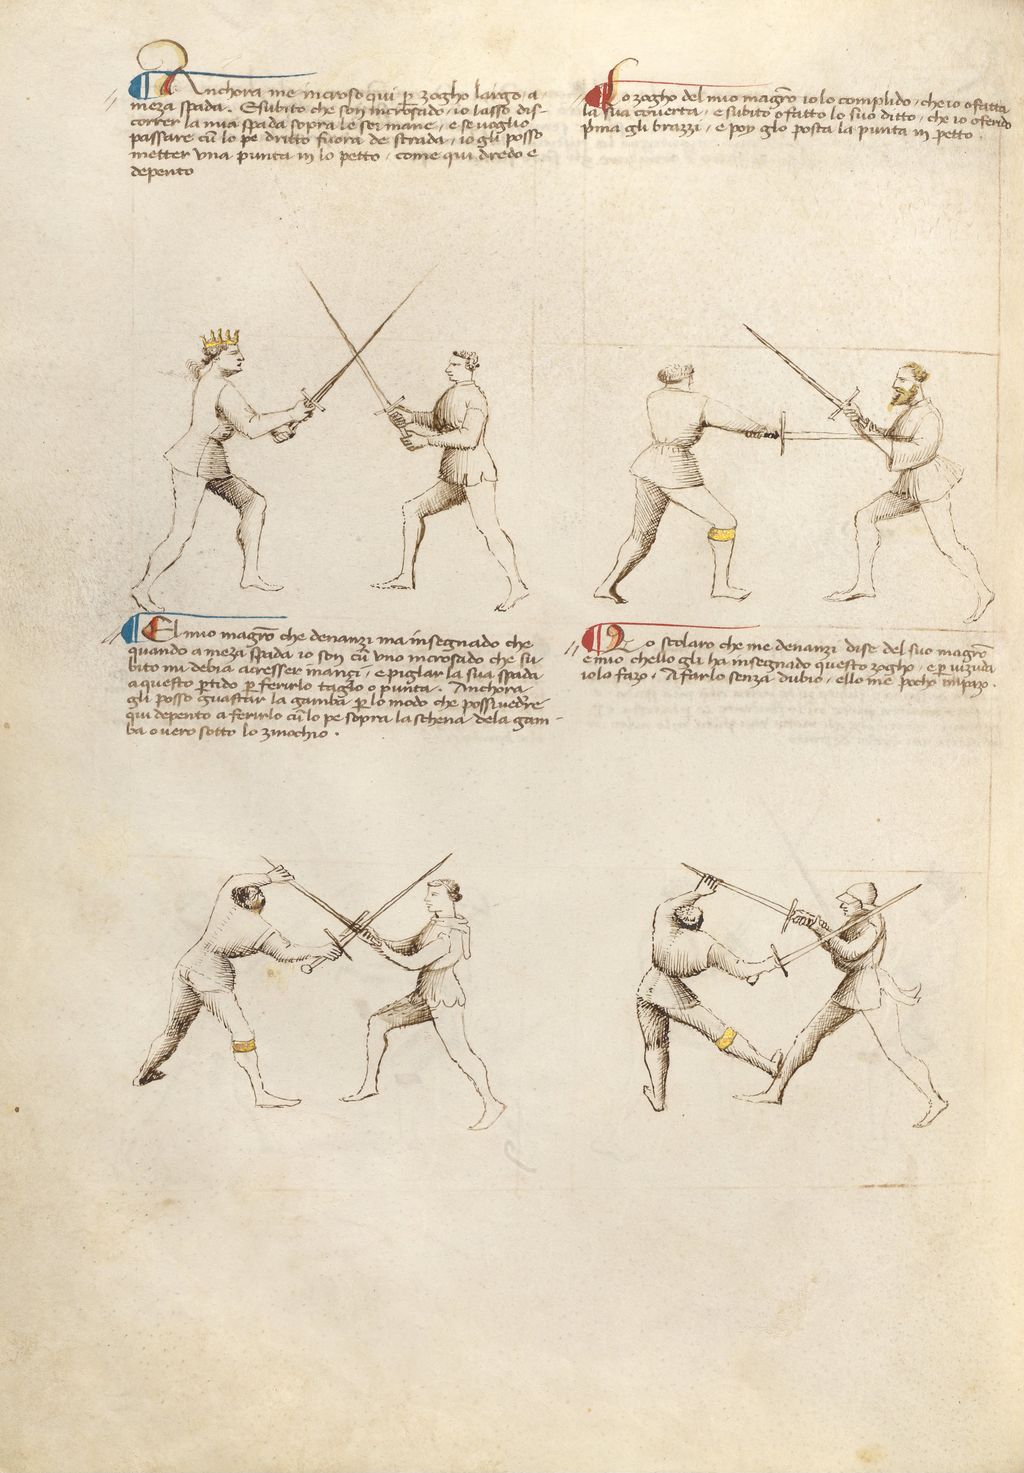 Anchora me incroso qui per zogho largo a
meza spada. E subito che son incrosado, io lasso dis-
correr la mia spada sopra le soi mane, e se voglio
passare cum lo pe dritto fuora de strada, io gli posso
metter una punta in lo petto, come qui dredo e
depento
Lo zogho del mio magistro io lo complido, che io o fatta
la sua coverta, e subito o fatto lo suo ditto, che io o ferido
prima gli brazzi, e poy glo posta la punta in petto.
El mio magistro che denanzi m'a insegnado che
quando a meza spada io son cum uno incrosado che su-
bito mi debia acresser inanzi, e piglar la sua spada
a questo partido per ferirlo taglo o punta. Anchora
gli posso guastar la gamba per lo modo che possi vedere
qui depento a ferirlo cum lo pe sopra la schena dela gam-
ba overo sotto lo zinochio.
Lo scolaro che me denanzi dise del suo magistro
e mio chello gli ha insegnado questo zogho, e per vizuda
io lo fazo. A farlo senza dubio, ello me pocho impazo.